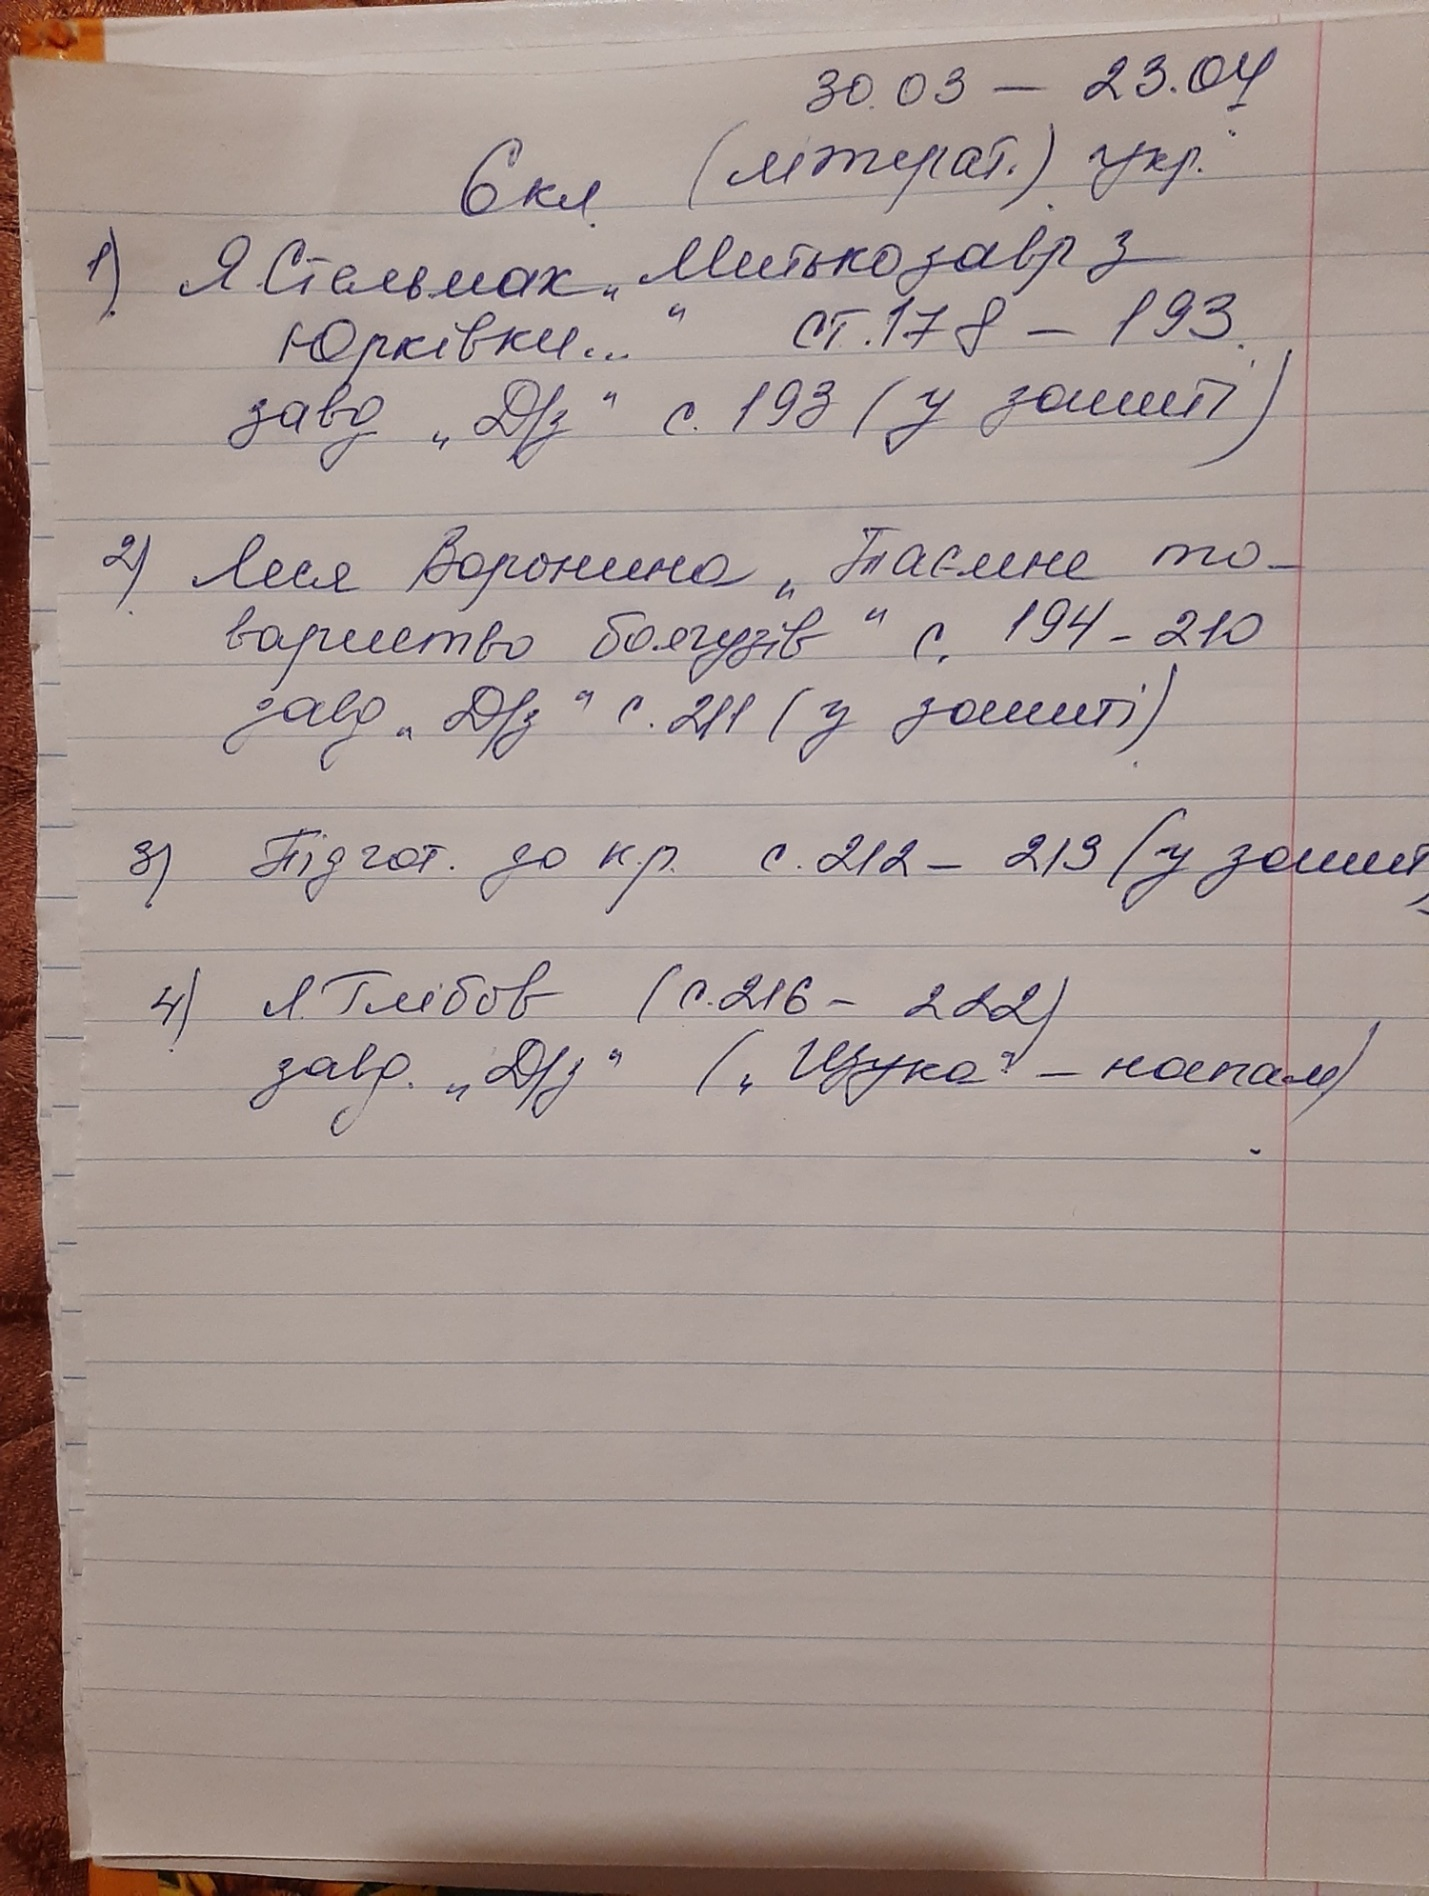 30.03 — 23.04
6 кл. (літерат.) укр.
1) Я.Стельмах „Митькозавр з
Юрківки..." ст.178 – 193.
завд „Д/з" с.193 (у зошиті)
2) Леся Воронина „Таємне то-
вариство боягузів" с. 194-210
завд „Д/з" с.211 (у зошиті)
3) Підгот. до к.р. с.212 – 213 (у зошиті
4) Л.Глібов (с.216 – 222)
завд. „Д/з" („Щука" – напам)